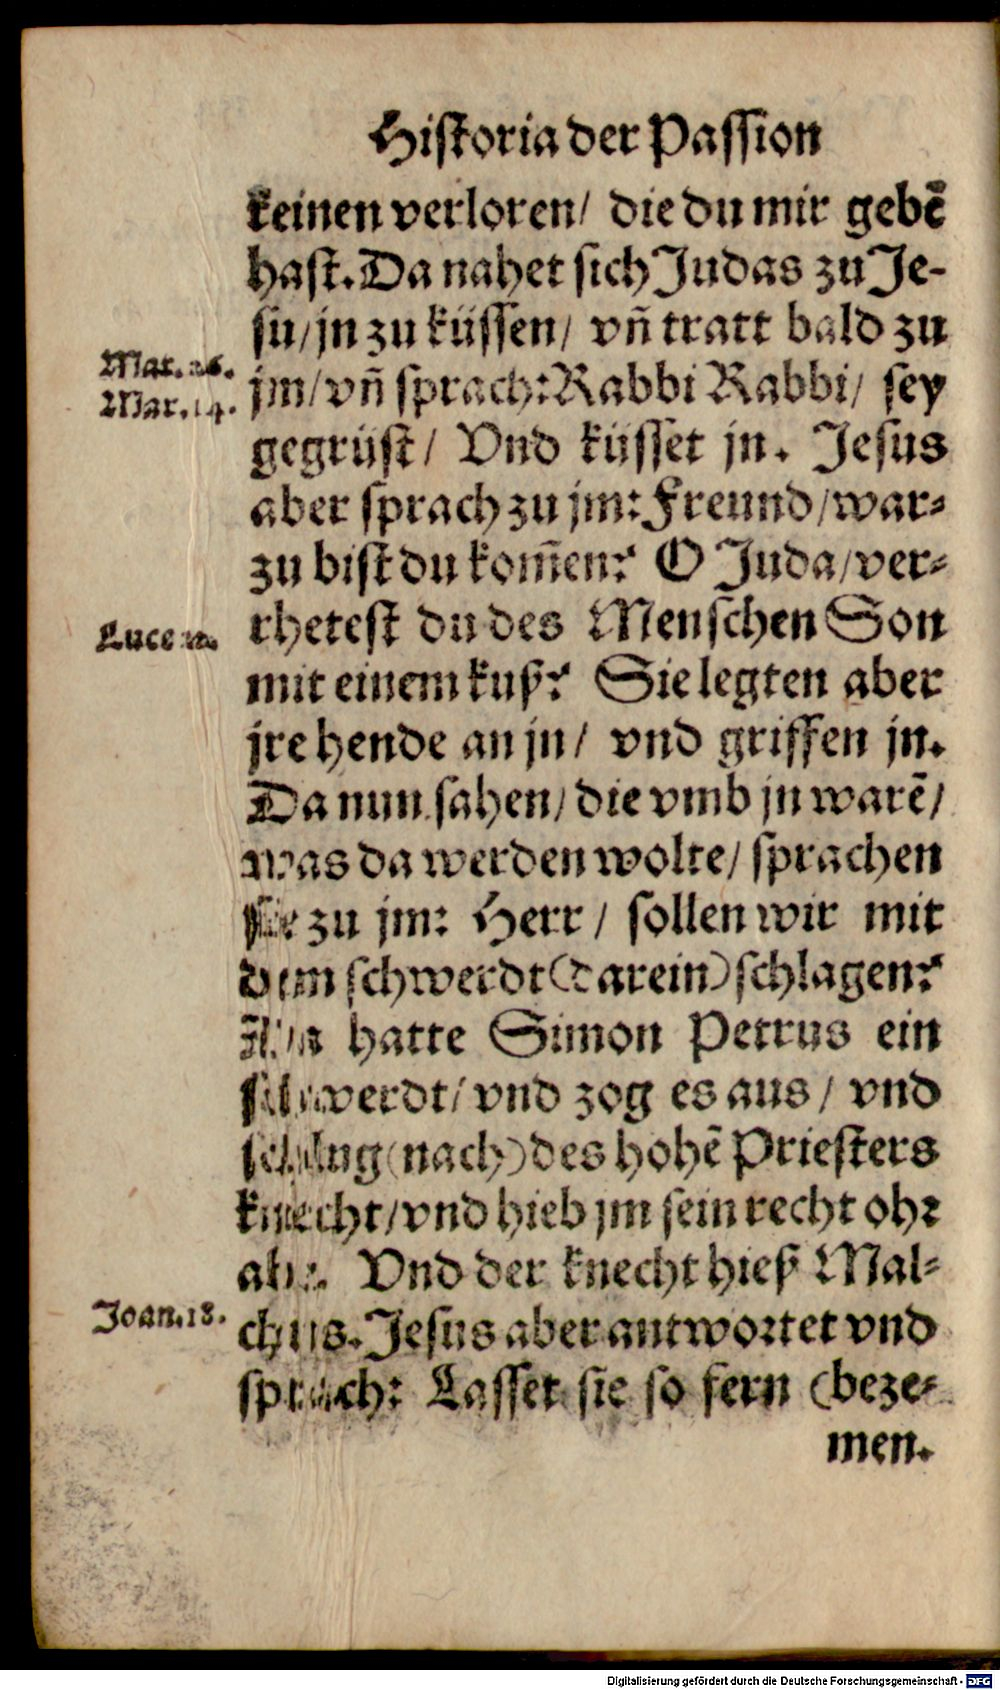 Historia der Passion
keinen verloren/ die du mir gebē
hast. Da nahet sich Judas zu Je-
su/ jn zu küssen/ vn̄ tratt bald zu
Mat. 26.
jm/ vn̄ sprach: Rabbi Rabbi/ sey
Mar. 14.
gegrüst/ Vnd küsset jn. Jesus
aber sprach zu jm: Freund/ war-
zu bist du kom̄en? O Juda/ ver-
Luce 22.
rhetest du des Menschen Son
mit einem kuß? Sie legten aber
jre hende an jn/ vnd griffen jn.
Da nun sahen/ die vmb jn warē/
was da werden wolte/ sprachen
sie zu jm: Herr/ sollen wir mit
dem schwerdt (darein) schlagen?
Nun hatte Simon Petrus ein
schwerdt/ vnd zog es aus/ vnd
schlug (nach) des hohē Priesters
knecht/ vnd hieb jm sein recht ohr
abe. Vnd der knecht hieß Mal-
Joan. 18.
chus. Jesus aber antwortet vnd
sprach: Lasset sie so fern (beze-
men.
Digitalisierung gefördert durch die Deutsche Forschungsgemeinschaft - DFG